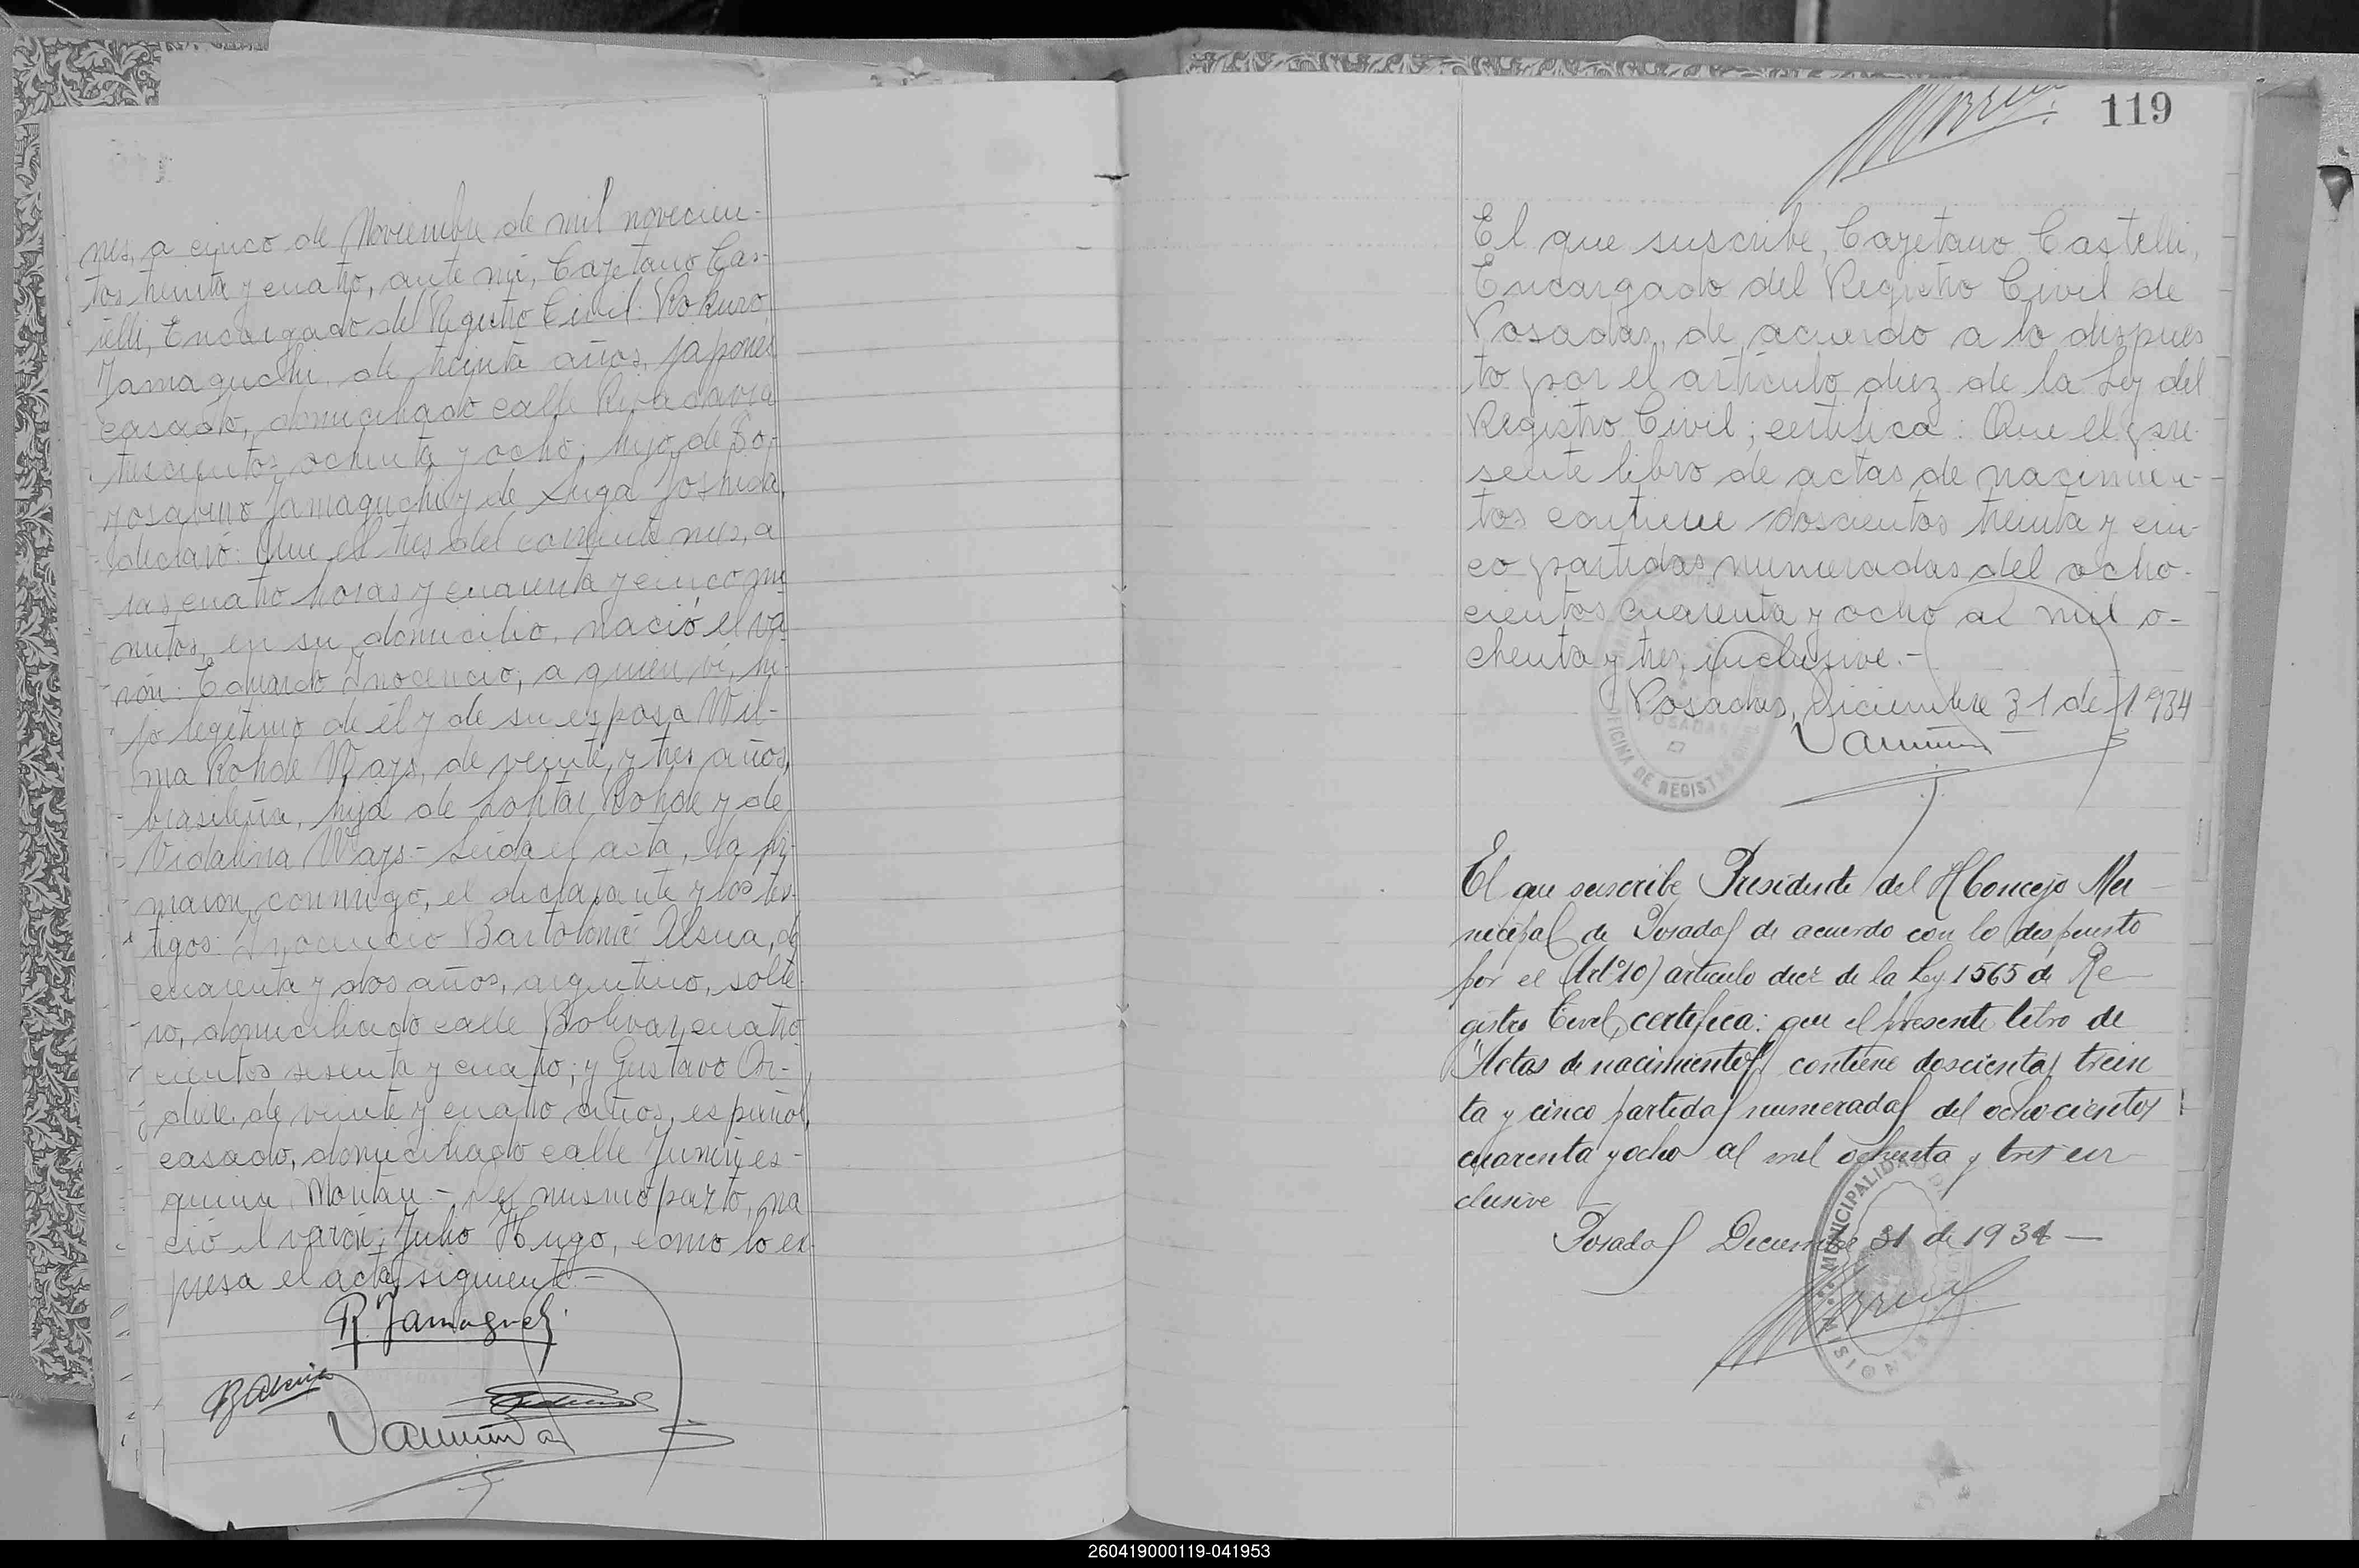 nes, a cinco de Noviembre de mil novecien-
tos treinta y cuatro, ante mi, Cayetano Cas-
telli, Encargado del Registro Civil: Rokuro
Yamaguchi, de treinta años, japonés
casado, domiciliado calle Rivadavia
trescientos ochenta y ocho; hijo de
Yamaguchi y de Suga Yoshida,
declaró: Que el tres del corriente mes, a
las cuatro horas y cuarenta y cinco mi-
nutos, en su domicilio, nació el va-
rón: Eduardo Inocencio, a quien ví, hi-
jo legítimo de él y de su esposa Wil-
ma Rohde Ways, de veinte y tres años,
brasileña, hija de Lohtar Rohde y de
Vidalina Ways.- Leida el acta, la fir-
maron, conmigo, el declarante y los tes-
tigos: Inocencio Bartolomé Alsua, de
cuarenta y dos años, argentino, solte-
ro, domiciliado calle Bolivar, cuatro-
cientos sesenta y cuatro; y Gustavo
de veinte y cuatro años, español,
casado, domiciliado calle Junín es-
quina . - Del mismo parto, na
ció el varón; Julio Hugo, como lo ex-
presa el acta siguiente.-
R. Yamaguchi
119
El que suscribe, Cayetano Castelli,
Encargado del Registro Civil de
Posadas, de acuerdo a lo dispues
to por el artículo diez de la Ley del
Registro Civil; certifica: Que el pre-
sente libro de actas de nacimien-
tos contiene doscientos treinta y cin-
co partidas numeradas del ocho-
cientos cuarenta y ocho al mil o-
chenta y tres, inclusive.-
Posadas, Diciembre 31 de 1934
POSADAS
OFICINA DE REGISTRO
El que suscribe, Presidente del H Concejo Mu-
nicipal de Posadas de acuerdo con lo dispuesto
por el (Art° 10) artículo diez de la Ley 1565 de Re-
gistro Civil, certifica: que el presente libro de
"Actas de nacimientos" contiene doscientas trein
ta y cinco partidas numeradas del ochocientos
cuarenta y ocho al mil ochenta y tres in-
clusive
Posadas Diciembre 31 de 1934 -
MUNICIPALIDAD DE
MISIONES
260419000119-041953